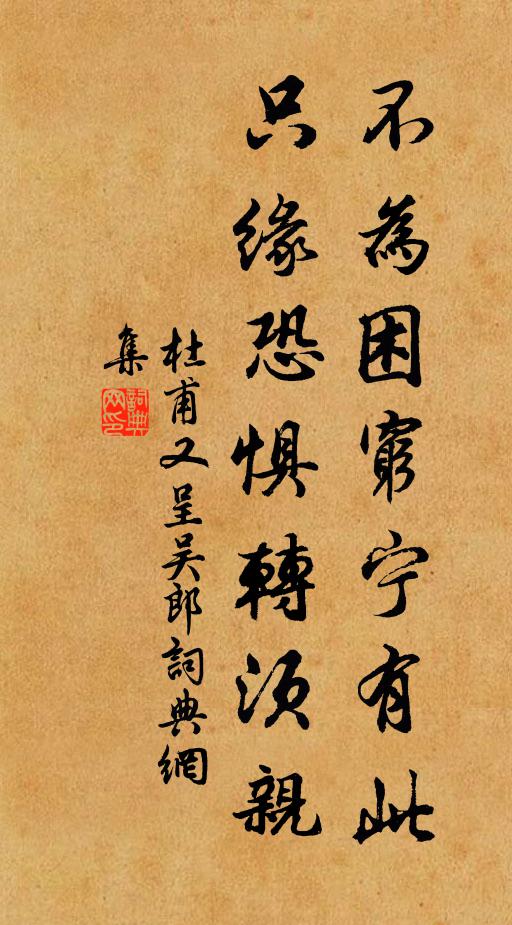 不為困窮宁有此
只緣恐懼轉須親
杜甫又呈吴郎詞典網
集
詞典
网印